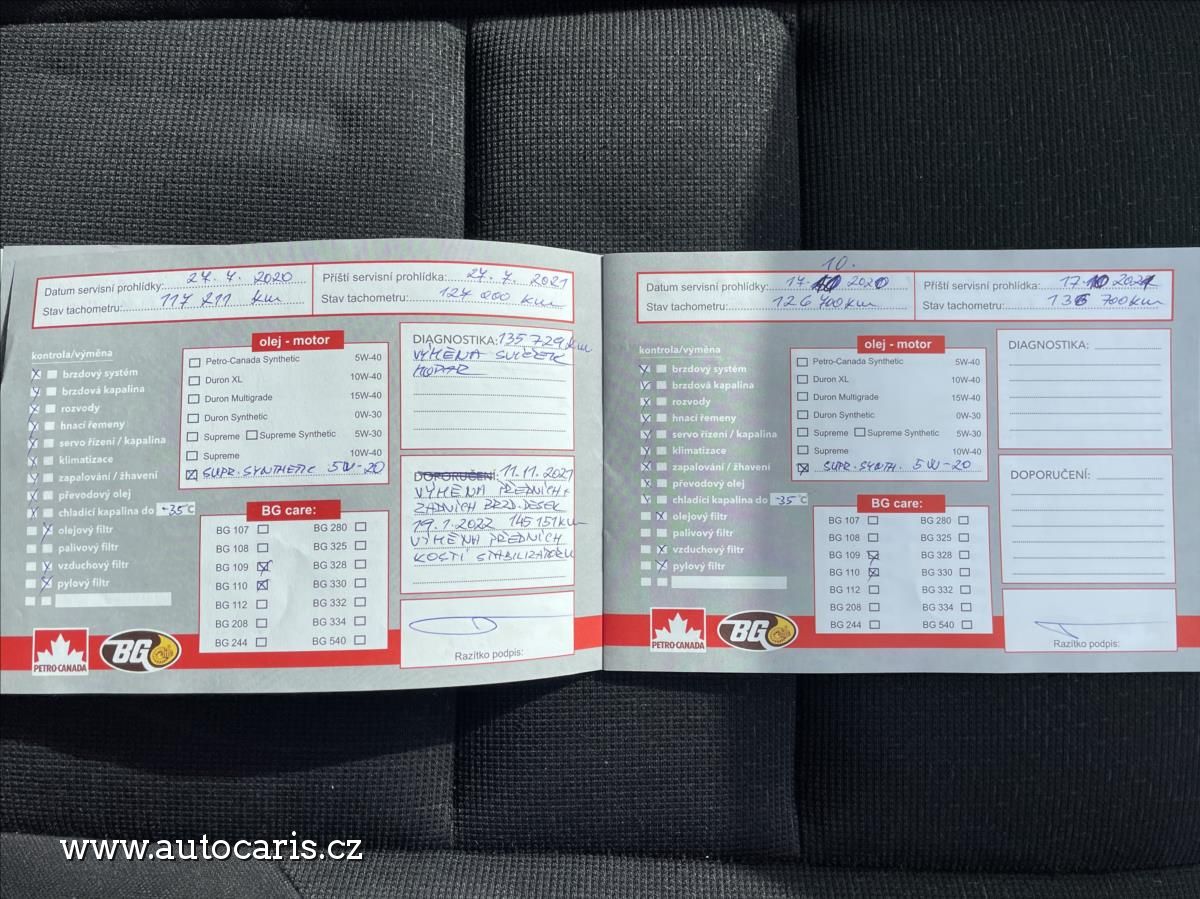 Datum servisní prohlídky: 27. 7. 2020
Stav tachometru: 117 211 km
Příští servisní prohlídka: 27. 7. 2021
Stav tachometru: 127 200 km
kontrola/výměna
brzdový systém
brzdová kapalina
rozvody
hnací řemeny
servo řízení / kapalina
klimatizace
zapalování / žhavení
převodový olej
chladící kapalina do -35°C
olejový filtr
palivový filtr
vzduchový filtr
pylový filtr
olej - motor
Petro-Canada Synthetic 5W-40
Duron XL 10W-40
Duron Multigrade 15W-40
Duron Synthetic 0W-30
Supreme Supreme Synthetic 5W-30
Supreme 10W-40
SUPR. SYNTHETIC 5W-20
BG care:
BG 107 BG 280
BG 108 BG 325
BG 109 BG 328
BG 110 BG 330
BG 112 BG 332
BG 208 BG 334
BG 244 BG 540
DIAGNOSTIKA: 135 729 km
VÝMĚNA SVÍČEK
MOPAR
DOPORUČENÍ: 11.11.2021
VÝMĚNA PŘEDNÍCH +
ZADNÍCH BRZD. DESEK
19.1.2022 145 151 km
VÝMĚNA PŘEDNÍCH
KOSTÍ STABILIZÁTORU
Razítko podpis:
PETRO-CANADA
BG
10.
Datum servisní prohlídky: 17. 2020
Stav tachometru: 126 700 km
Příští servisní prohlídka: 17 10 2021
Stav tachometru: 136 700 km
kontrola/výměna
brzdový systém
brzdová kapalina
rozvody
hnací řemeny
servo řízení / kapalina
klimatizace
zapalování / žhavení
převodový olej
chladící kapalina do -35°C
olejový filtr
palivový filtr
vzduchový filtr
pylový filtr
olej - motor
Petro-Canada Synthetic 5W-40
Duron XL 10W-40
Duron Multigrade 15W-40
Duron Synthetic 0W-30
Supreme Supreme Synthetic 5W-30
Supreme 10W-40
SUPR. SYNTH. 5W-20
BG care:
BG 107 BG 280
BG 108 BG 325
BG 109 BG 328
BG 110 BG 330
BG 112 BG 332
BG 208 BG 334
BG 244 BG 540
DIAGNOSTIKA:
DOPORUČENÍ:
Razítko podpis:
PETRO-CANADA
BG
www.autocaris.cz